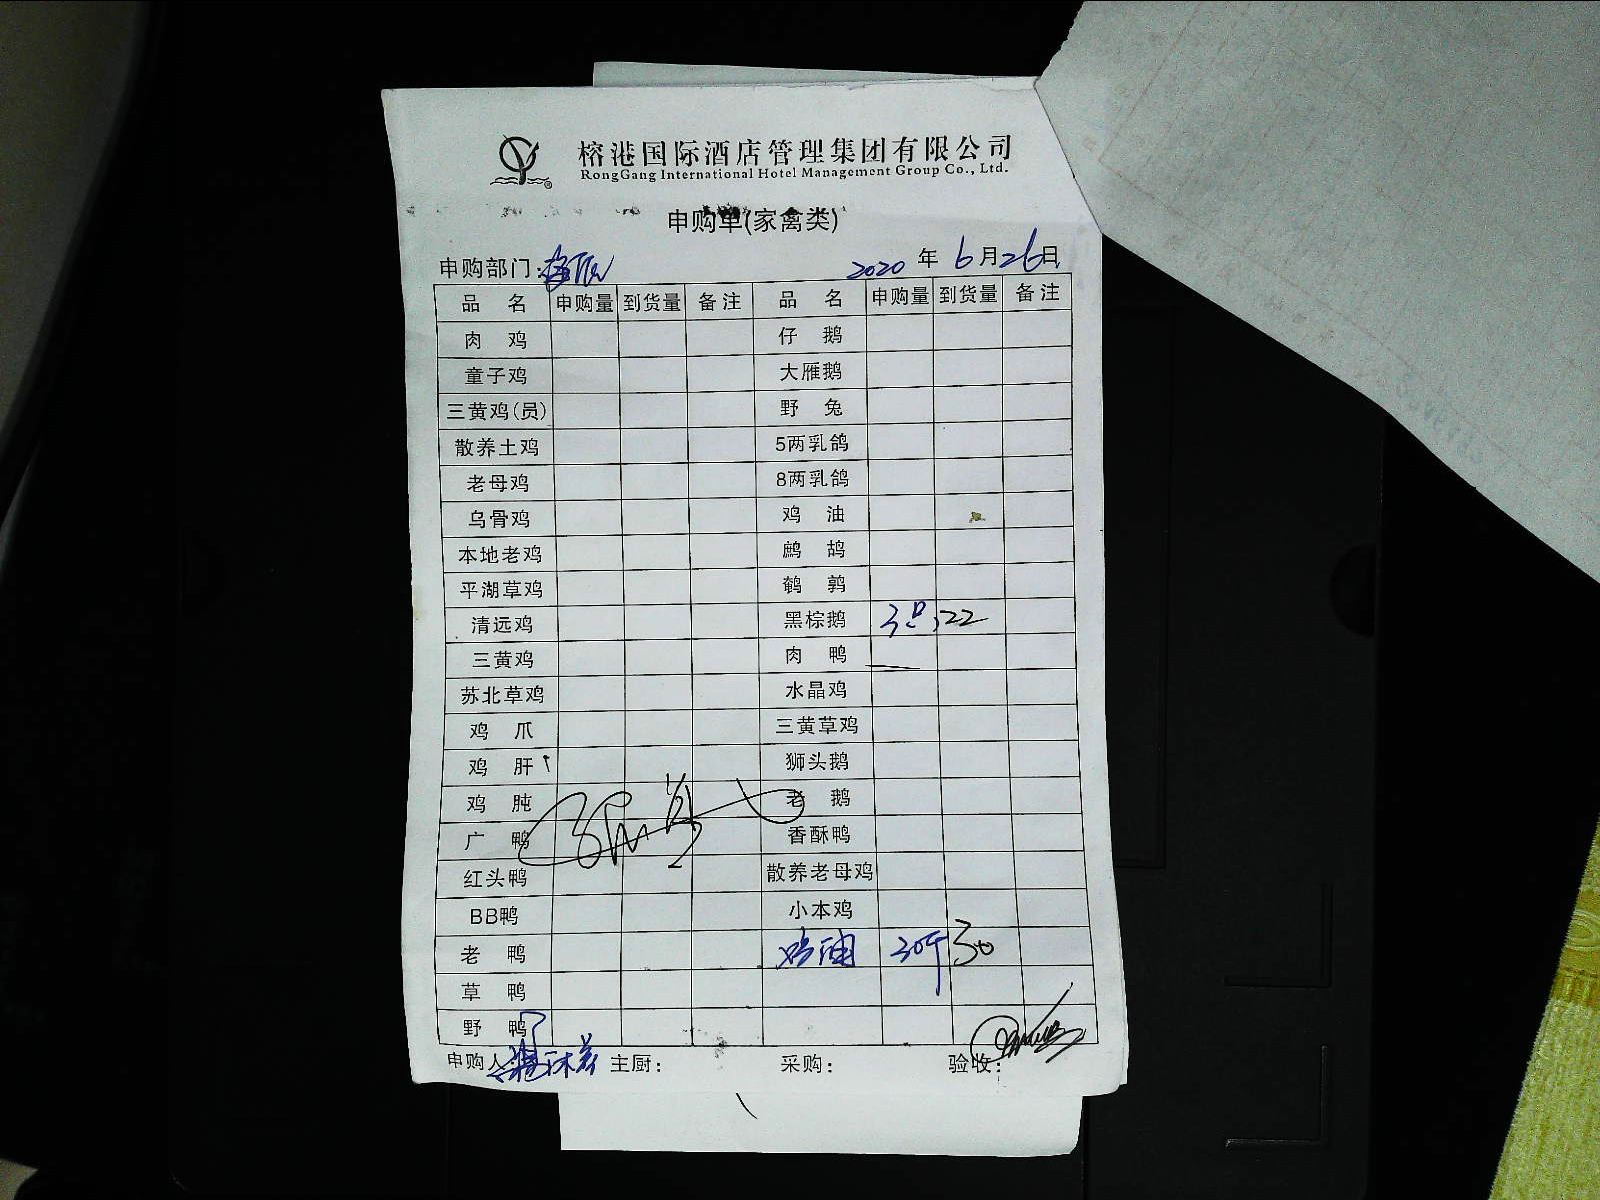 榕港国际酒店管理集团有限公司
RongGang International Hotel Management Group Co., Ltd.
申购单(家禽类)
申购部门: 2020 年 6 月 26 日
品 名 申购量 到货量 备注 品 名 申购量 到货量 备注
肉 鸡 仔 鹅
童子鸡 大雁鹅
三黄鸡(员) 野 兔
散养土鸡 5两乳鸽
老母鸡 8两乳鸽
乌骨鸡 鸡 油
本地老鸡 鹧 鸪
平湖草鸡 鹌 鹑
清远鸡 黑棕鹅 3只 22
三黄鸡 肉 鸭
苏北草鸡 水晶鸡
鸡 爪 三黄草鸡
鸡 肝 狮头鹅
鸡 肫 老 鹅
广 鸭 香酥鸭
红头鸭 散养老母鸡
BB鸭 小本鸡
老 鸭 鸡油 30斤 30
草 鸭
野 鸭
申购人: 主厨: 采购: 验收: